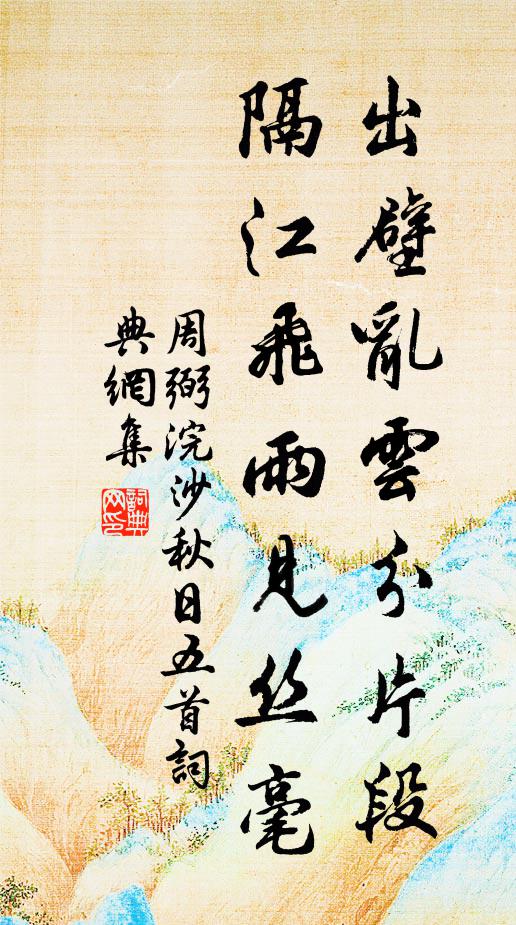 出壁亂雲分片段
隔江飛雨見丝毫
周弼浣沙秋日五首詞
典網集
詞典網印